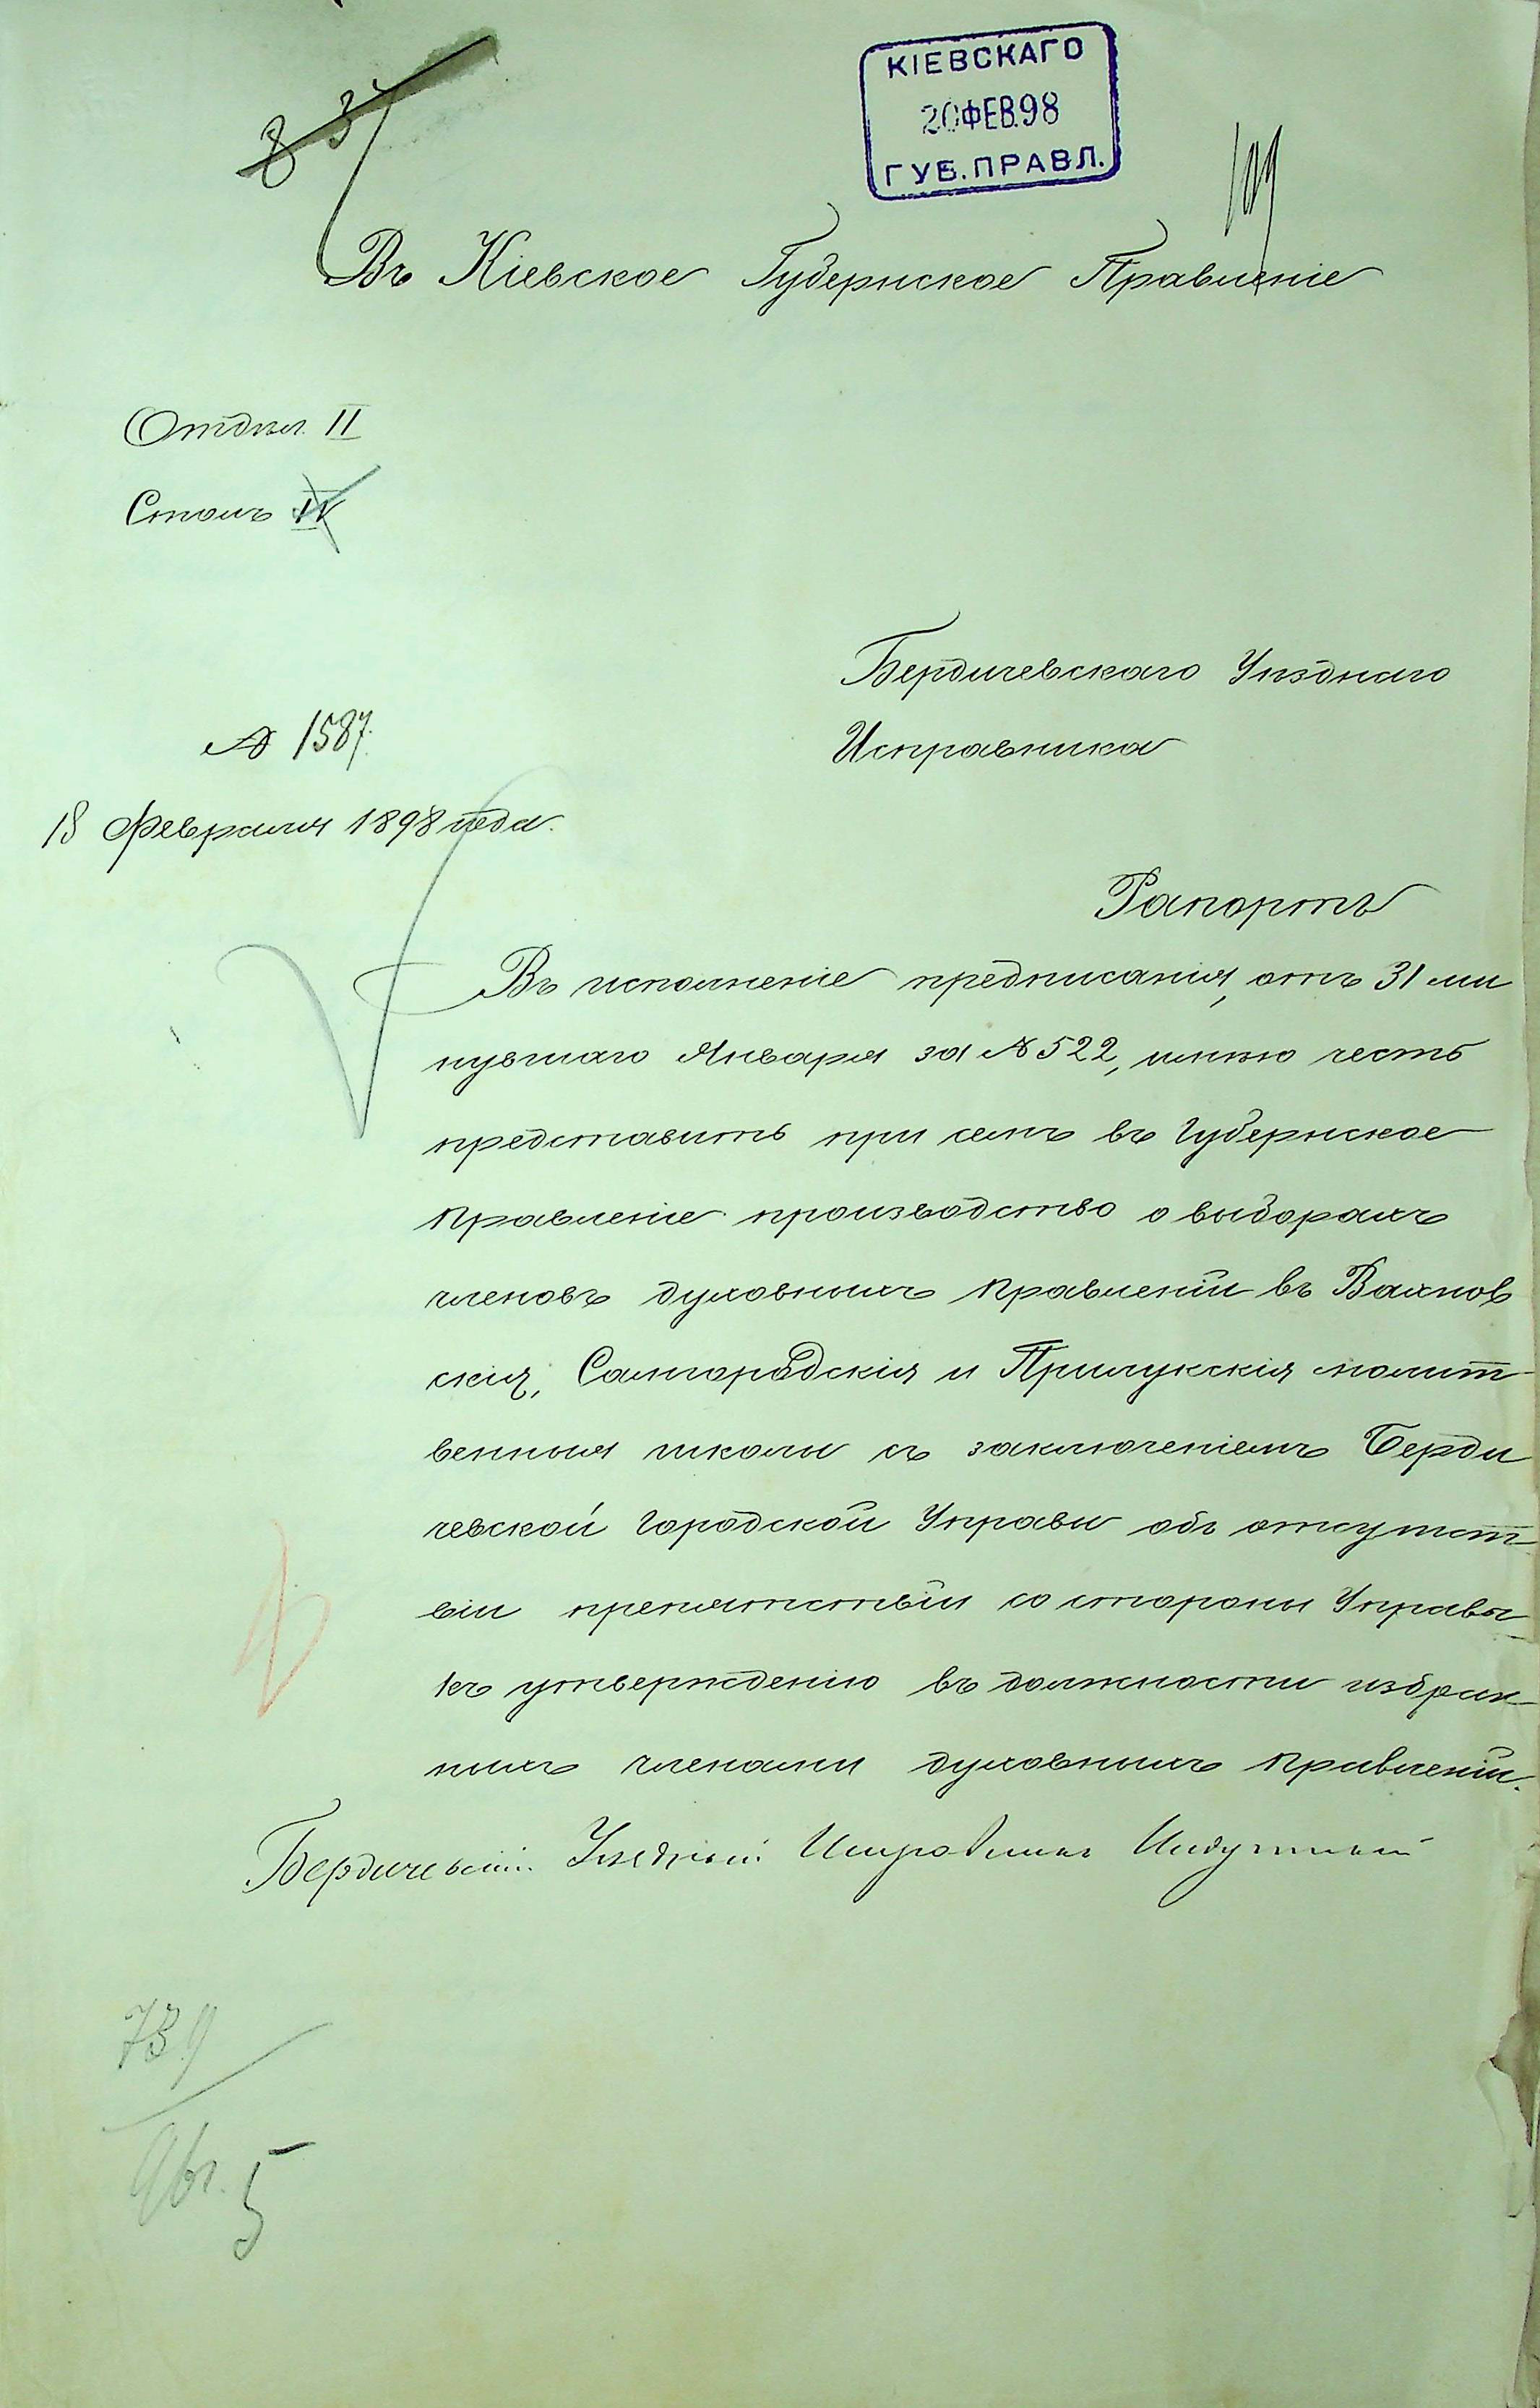 КІЕВСКАГО
20 ФЕВ.98
ГУБ. ПРАВЛ.
Въ Кіевское Губернское Правленіе
Отдѣл. II
Столъ IV
Бердичевскаго Уѣзднаго
Исправника
№ 1587.
18 Февраля 1898 года.
Рапортъ
Въ исполненіе предписанія, отъ 31 ми
нувшаго Января за № 522, имѣю честь
представить при семъ въ Губернское
Правленіе производство о выборахъ
членовъ духовныхъ Правленій въ Вахнов
скія, Самгородскія и Прилукскія молит
венныя школы съ заключеніемъ Берди
чевской Городской Управы объ отсутст
віи препятствій со стороны Управы
къ утвержденію въ должности избран
ныхъ членами духовныхъ Правленій.
Бердичевскій Уѣздный Исправникъ
739
5